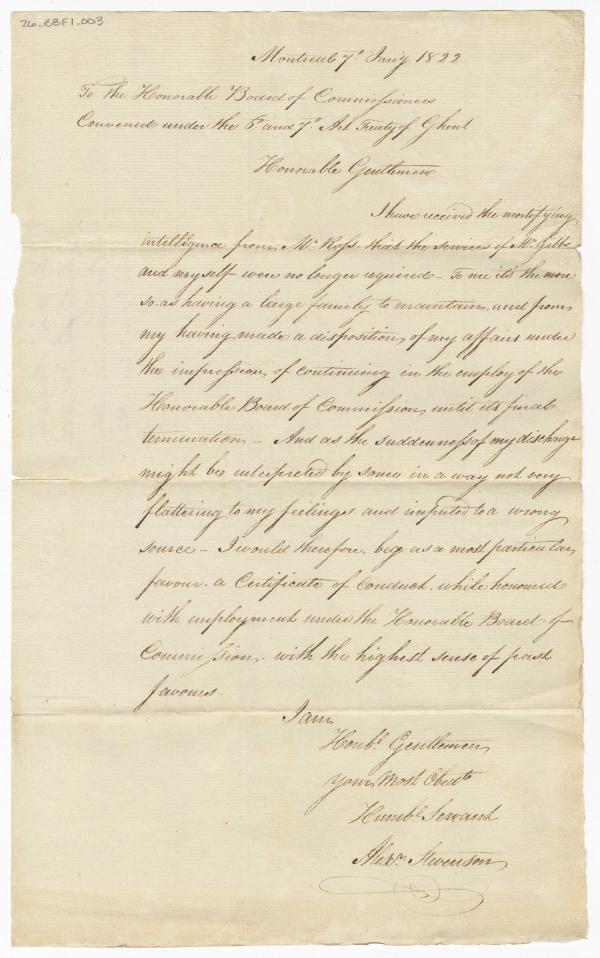 26-BBF1-003
Montreal 7th Jany 1822
To the Honorable Board of Commissioners
Convened under the 6th and 7th Art Treaty of Ghent
Honorable Gentlemen
I have received the mortifying
intelligence from Mr Ross. that the services of Mr Gibbs
and myself were no longer required – To me it's the more
so. as having a large family to maintain, and from
my having made a disposition of my affairs under
the impression of continuing in the employ of the
Honorable Board of Commission, until its final
termination – And as the suddenness of my discharge
might be interpreted by some in a way not very
flattering to my feelings and imputed to a wrong
source – I would therefore, beg as a most particular
favour. a Certificate of Conduct. while honoured
with employment under the Honorable Board of
Commission. with the highest sense of past
favours –
I am
Honbl Gentlemen
Your Most Obedt
Humbl Servant
Alexr Stevenson